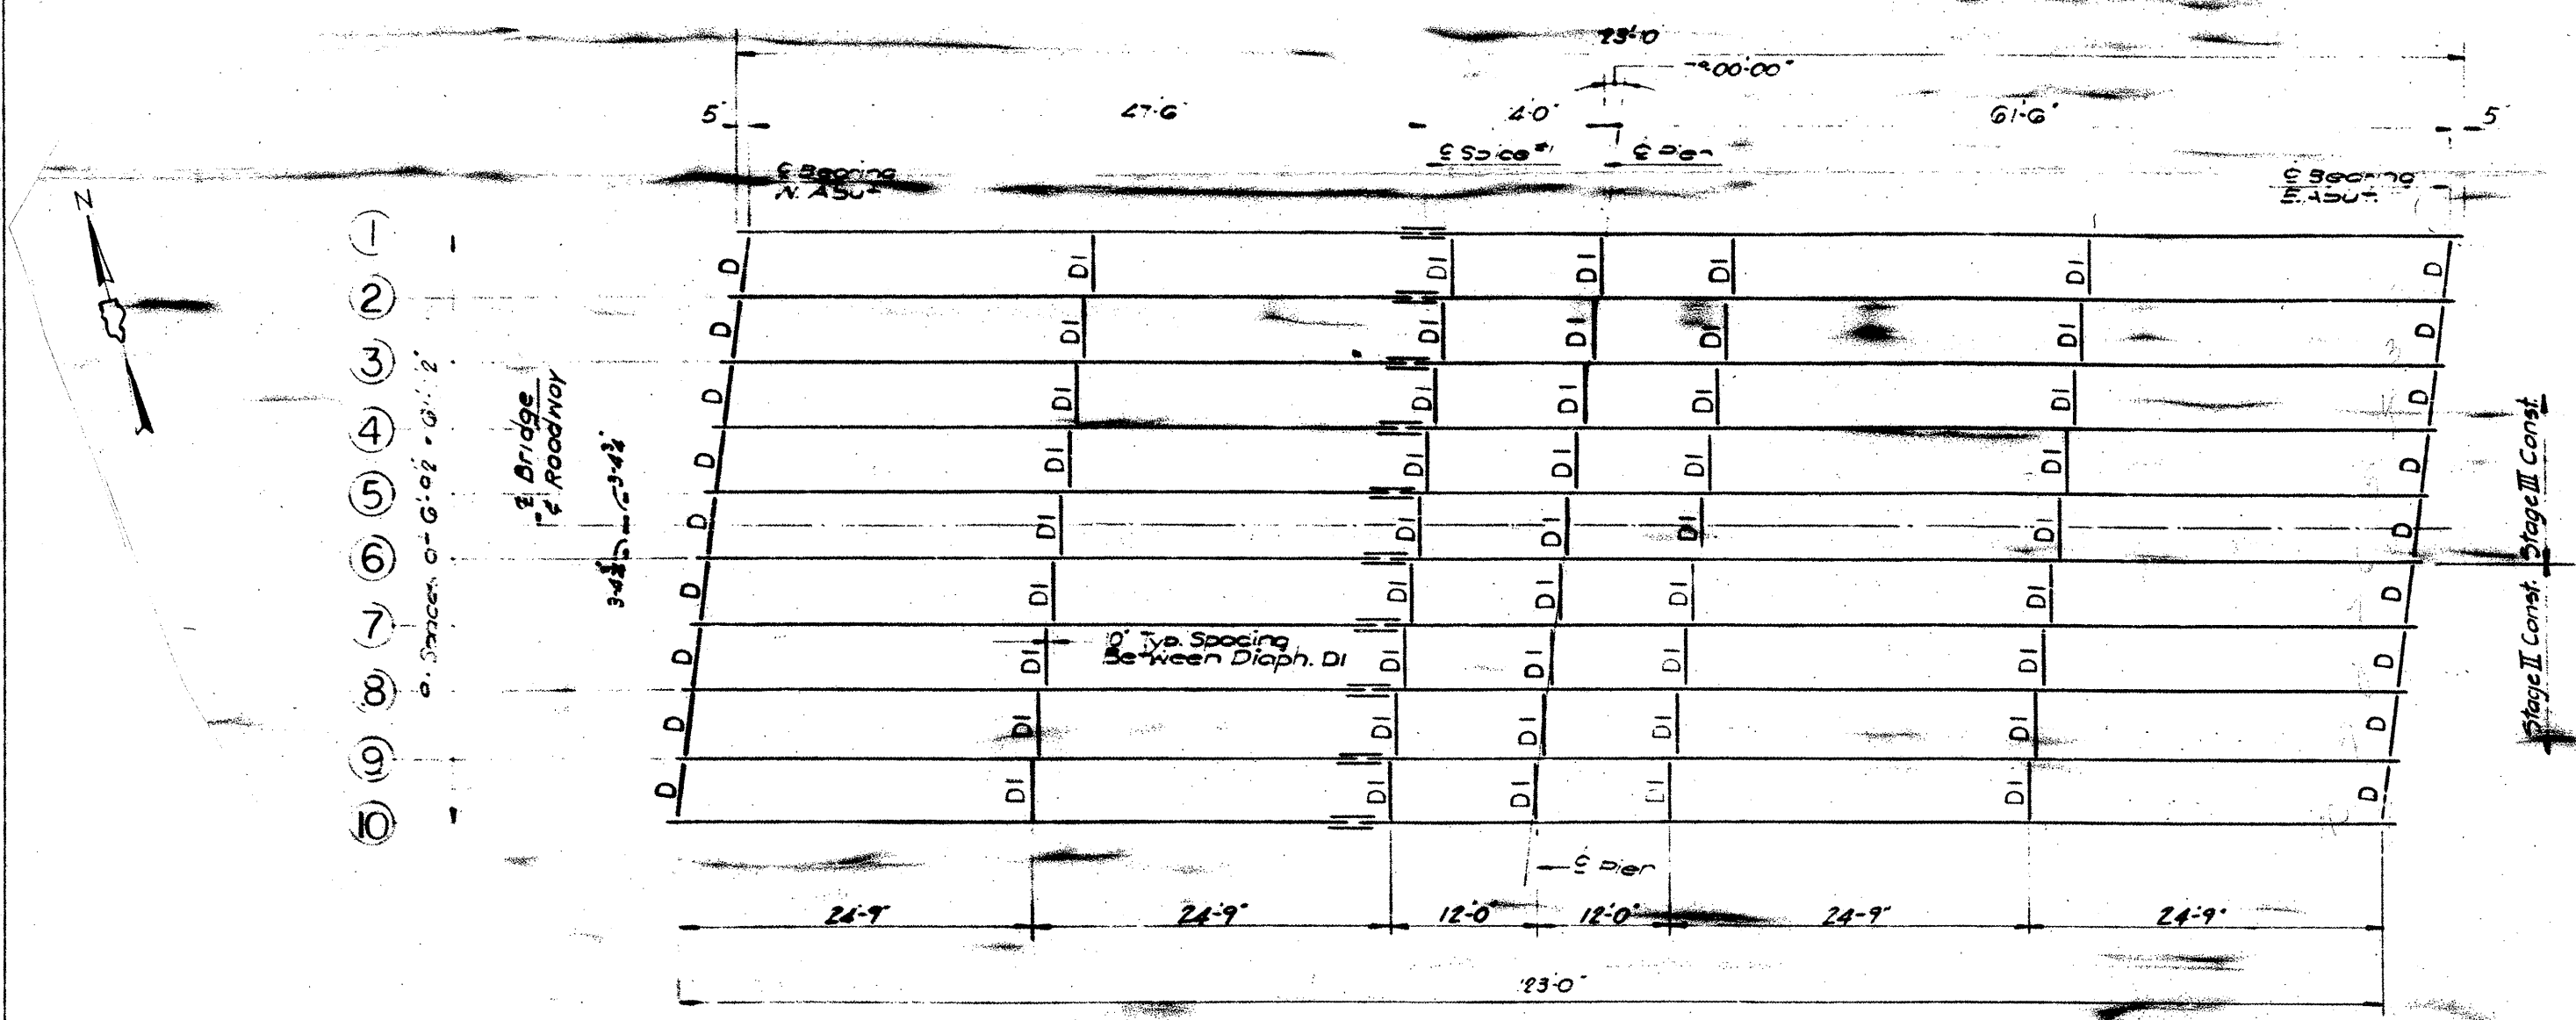 23'-0
00'-00"
5"
47'-6"
4'-0"
61'-6"
5"
℄ Pier
℄ Bearing
N. Abut
℄ Bearing
E. Abut.
N
1
2
3
4
5
6
7
8
9
10
℄ Bridge
& Roadway
3'-4¾"
D D1 D1 D1 D1 D1 D
D D1 D1 D1 D1 D1 D
D D1 D1 D1 D1 D1 D
D D1 D1 D1 D1 D1 D
D D1 D1 D1 D1 D1 D
D D1 D1 D1 D1 D1 D
D D1 D1 D1 D1 D1 D
D D1 D1 D1 D1 D1 D
D D1 D1 D1 D1 D1 D
Typ. Spacing
Between Diaph. D1
Stage III Const.
Stage II Const.
℄ Pier
24'-9"
24'-9"
12'-0"
12'-0"
24'-9"
24'-9"
23'-0"